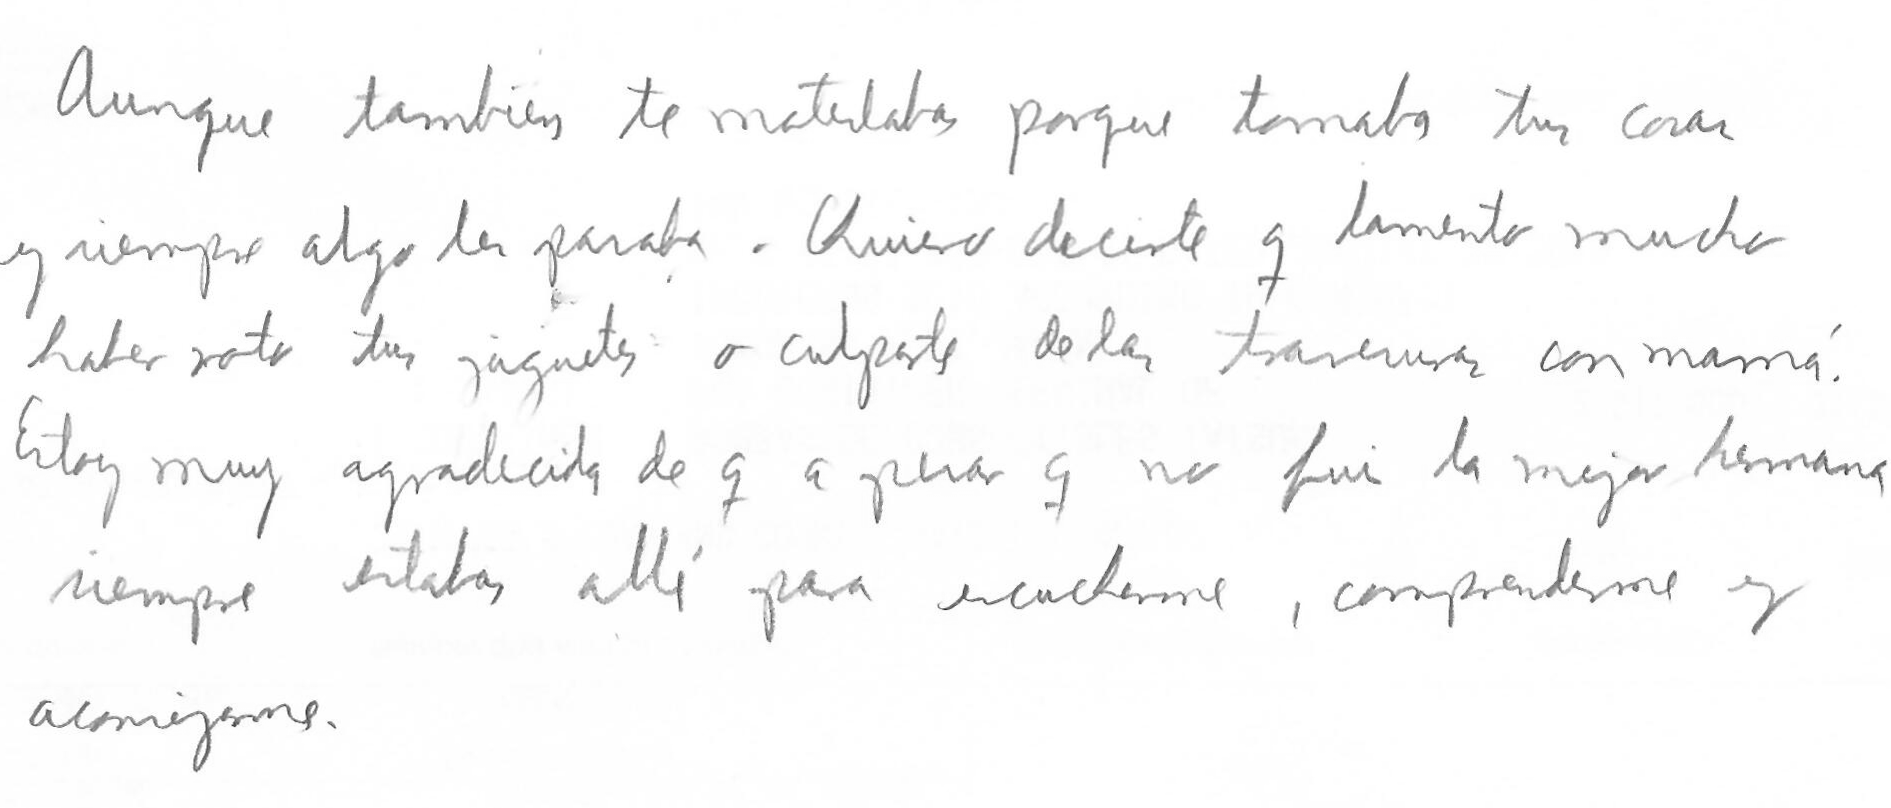 Aunque también te molestabas porque tomaba tus cosas
y siempre algo les pasaba. Quiero decirte q lamento mucho
haber roto tus juguetes o culparte de las travesuras con mamá.
Estoy muy agradecida de q a pesar q no fui la mejor hermana
siempre estabas allí para escucharme, comprenderme y
aconsejarme.